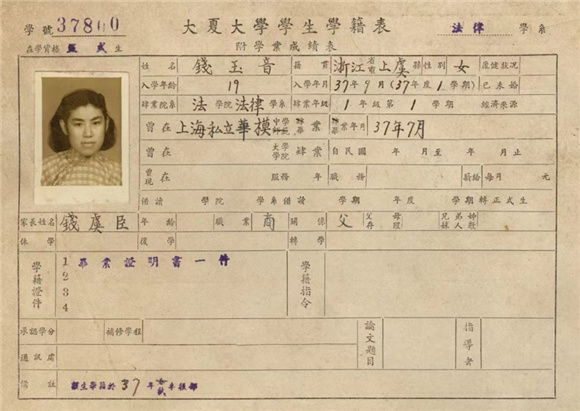 學號 37800 大夏大學學生學籍表 法律 學系
在學資格 正式 生 附學業成績表
姓名 錢玉音 籍貫 浙江 省市 上虞 縣 性別 女 康健狀況
入學年齡 19 入學年月 37年9月(37年度1學期) 已未婚
肄業院系 法 學院 法律 學系 肄業年級 1年級第1學期 經濟來源
曾在 上海私立華模 中學 師範 肄畢業 肄畢業年月 37年7月
曾在 大學 學院 肄業 自民國 年 月至 年 月止
曾現在 服務 年 職務 薪給每月 元
借讀 學院 學系借讀 學期 年度 學期轉正式生
家長姓名 錢虞臣 年齡 職業 商 關係 父 父母存歿 兄弟姊妹人數
休學 復學 轉學
學籍證件 1 畢業證明書一件 學籍指令
2
3
4
承認學分 補修學程 論文題目 指導者
通訊處
備註 37年